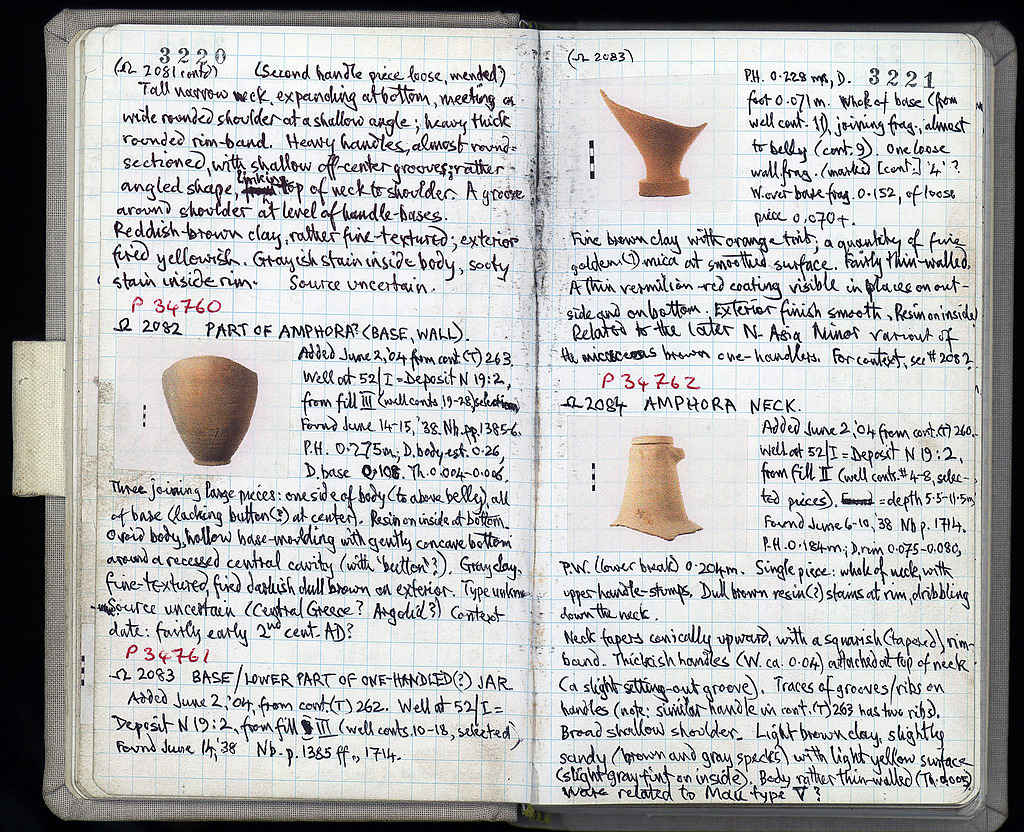 3220
(Ω 2081 contd) (Second handle piece loose, mended?)
Tall narrow neck, expanding at bottom, meeting a
wide rounded shoulder at a shallow angle; heavy thick
rounded rim-band. Heavy handles, almost round-
sectioned, with shallow off-center grooves; rather
angled shape, linking top of neck to shoulder. A groove
around shoulder at level of handle-bases.
Reddish-brown clay, rather fine-textured; exterior
fired yellowish. Grayish stain inside body, sooty
stain inside rim. Source uncertain.
P 34760
Ω 2082 PART OF AMPHORA? (BASE, WALL).
Added June 2, '04 from cont. (T) 263
Well at 52/I = Deposit N 19:2,
from fill III (well conts. 19-28) selection
Found June 14-15, '38. Nb. pp. 1385-6.
P.H. 0.275m; D. body est. 0.26,
D. base 0.108. Th. 0.004-0.006.
Three joining large pieces: one side of body (to above belly), all
of base (lacking button(?) at center). Resin on inside at bottom.
Ovoid body, hollow base-molding with gently concave bottom
around a recessed central cavity (with "button"?). Gray clay,
fine-textured, fired darkish dull brown on exterior. Type unknown
Source uncertain (Central Greece? Argolid?) Context
date: fairly early 2nd cent. AD?
P 34761
Ω 2083 BASE/LOWER PART OF ONE-HANDLED(?) JAR
Added June 2, '04, from cont. (T) 262. Well at 52/I =
Deposit N 19:2, from fill III (well conts. 10-18, selected)
Found June 14, '38 Nb. p. 1385 ff., 1714.
(Ω 2083)
3221
P.H. 0.228 m, D.
foot 0.071 m. Whole of base (from
well cont. 11), joining frag., almost
to belly (cont. 9). One loose
wall frag. (marked [cont.] '4'?
W. over base frag. 0.152, of loose
piece 0.070+.
Fine brown clay with orange tint; a quantity of fine
golden(?) mica at smoothed surface. Fairly thin-walled.
A thin vermilion-red coating visible in places on out-
side and on bottom. Exterior finish smooth. Resin on inside
Related to the later N. Asia Minor variant of
the micaceous brown one-handlers. For context, see # 2082.
P 34762
Ω 2084 AMPHORA NECK.
Added June 2, '04 from cont. (T) 260.
Well at 52/I = Deposit N 19:2,
from fill II (well conts. # 4-8, selec-
ted pieces). = depth 5.5-11.5m,
Found June 6-10, '38 Nb p. 1714.
P.H. 0.184m; D. rim 0.075-0.080,
P.W. (lower break) 0.204m. Single piece: whole of neck, with
upper handle-stumps. Dull brown resin(?) stains at rim, dribbling
down the neck.
Neck tapers conically upward, with a squarish (tapered) rim-
band. Thickish handles (W. ca. 0.04) attached at top of neck
(a slight setting-out groove). Traces of grooves/ribs on
handles (note: similar handle in cont. (T) 263 has two ribs).
Broad shallow shoulder. Light brown clay, slightly
sandy (brown and gray specks) with light yellow surface
(slight gray tint on inside). Body rather thin-walled (Th. 0.005)
Ware related to Mau type V?